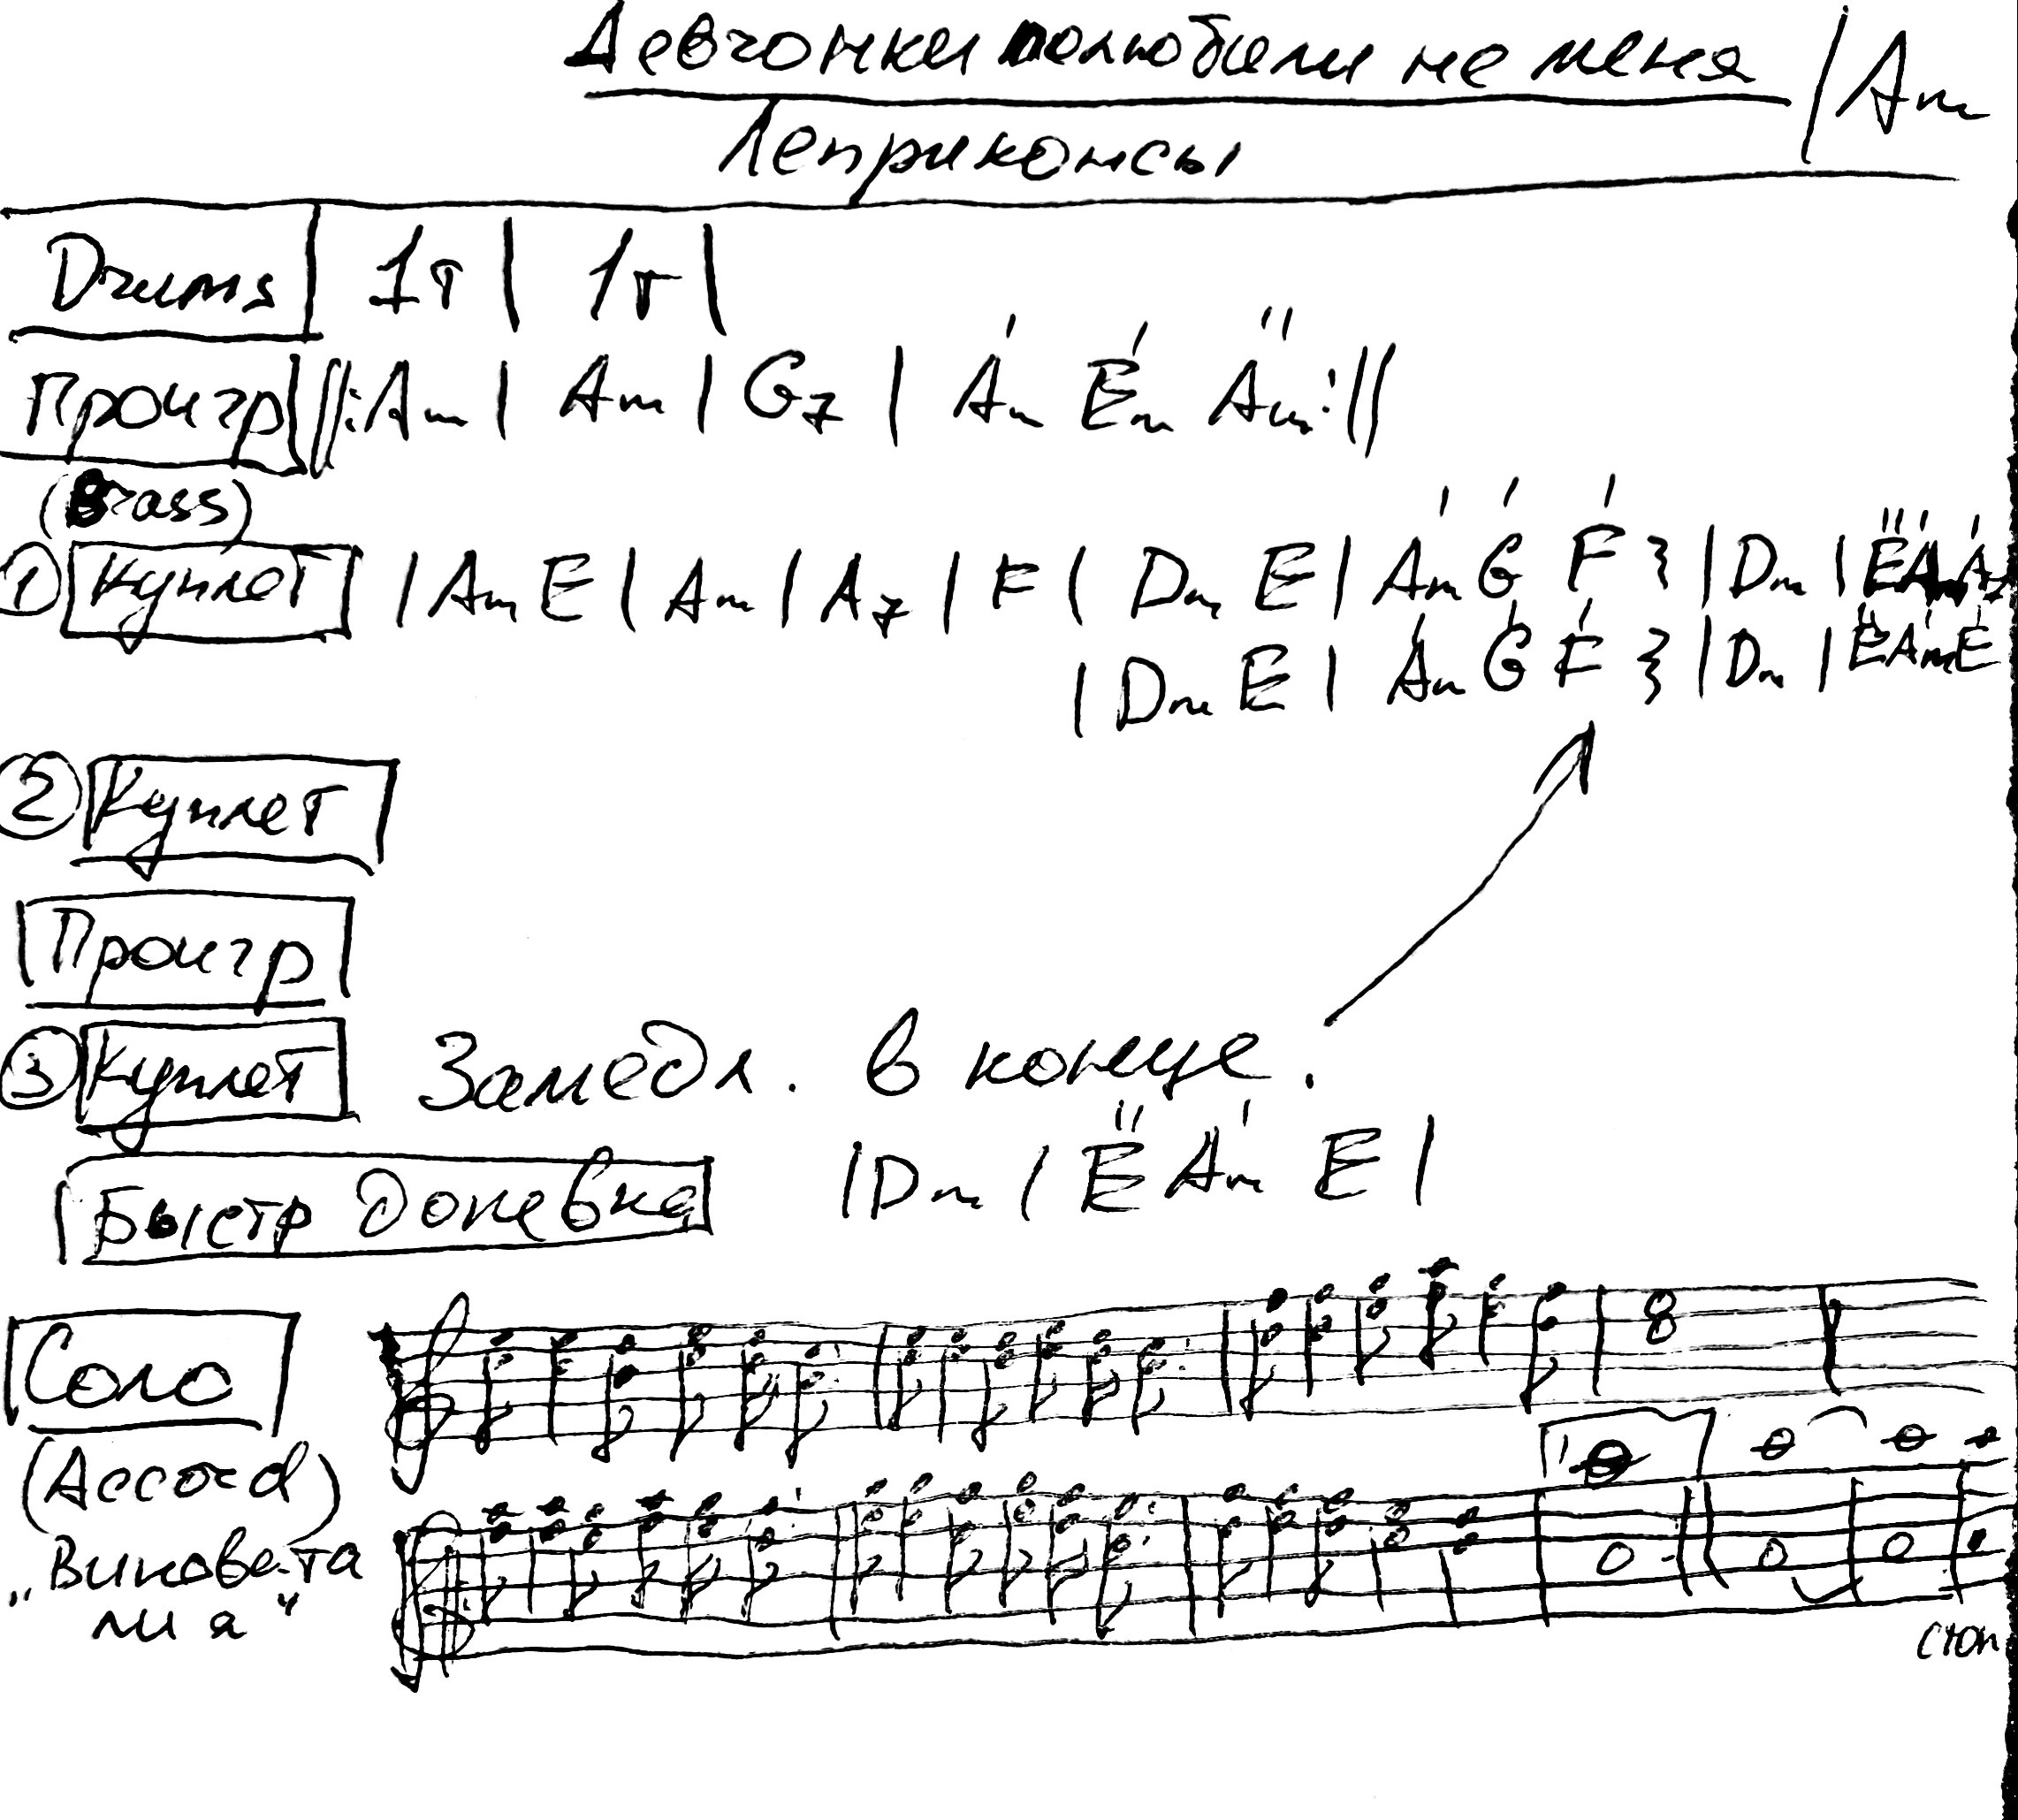 Девчонки полюбили не меня / Am
Леприконсы
Drums | 1т | 1т |
Проигр ||: Am | Am | G7 | Am Em Am :||
(Brass)
① Куплет | Am E | Am | A7 | F | Dm E | Am G F } | Dm | E Am A7
| Dm E | Am G F } | Dm | E Am E
② Куплет
Проигр
③ Куплет Замедл. в конце.
Быстр допевка | Dm | E Am E |
Соло
(Accord)
„Виновата
ли я“
стоп